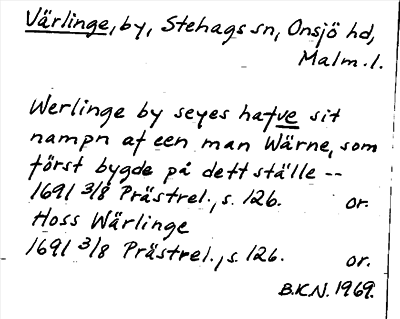 Värlinge, by, Stehags sn, Onsjö hd,
Malm. l.
Werlinge by seyes hafve sit
nampn af een man Wärne, som
först bygde på dett ställe --
1691 3/8 Prästrel., s. 126. or.
Hoss Wärlinge
1691 3/8 Prästrel., s. 126. or.
B.K.N. 1969.